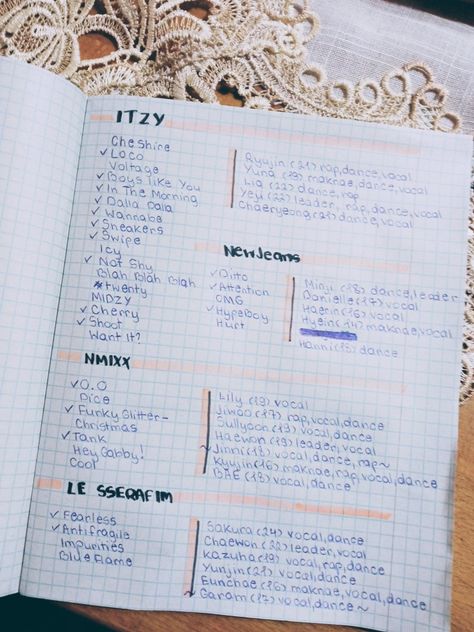 ITZY
Cheshire
✓ LOCO
Voltage
✓ Boys Like You
✓ In The Morning
✓ Dalla Dalla
✓ Wannabe
✓ Sneakers
✓ Swipe
Icy
✓ Not Shy
Blah Blah Blah
#twenty
MIDZY
✓ Cherry
✓ Shoot
Want It?
Ryujin (21) rap, dance, vocal
Yuna (19) maknae, dance, vocal
Lia (22) dance, rap
Yeji (22) leader, rap, dance, vocal
Chaeryeong (21) dance, vocal
NewJeans
✓ Ditto
✓ Attention
OMG
✓ Hypeboy
Hurt
Minji (18) dance, leader
Danielle (17) vocal
Haerin (16) vocal
Hyein (14) maknae, vocal
Hanni (18) dance
NMIXX
✓ O.O
Dice
✓ Funky Glitter-
Christmas
✓ Tank
Hey Gabby!
Cool
Lily (19) vocal
Jiwoo (17) rap, vocal, dance
Sullyoon (18) vocal, dance
Haewon (19) leader, vocal
~ Jinni (18) vocal, dance, rap ~
Kyujin (16) maknae, rap, vocal, dance
BAE (18) vocal, dance
LE SSERAFIM
✓ Fearless
✓ Antifragile
Impurities
Blue Flame
Sakura (24) vocal, dance
Chaewon (22) leader, vocal
Kazuha (19) vocal, rap, dance
Yunjin (21) vocal, dance
Eunchae (16) maknae, vocal, dance
~ Garam (17) vocal, dance ~